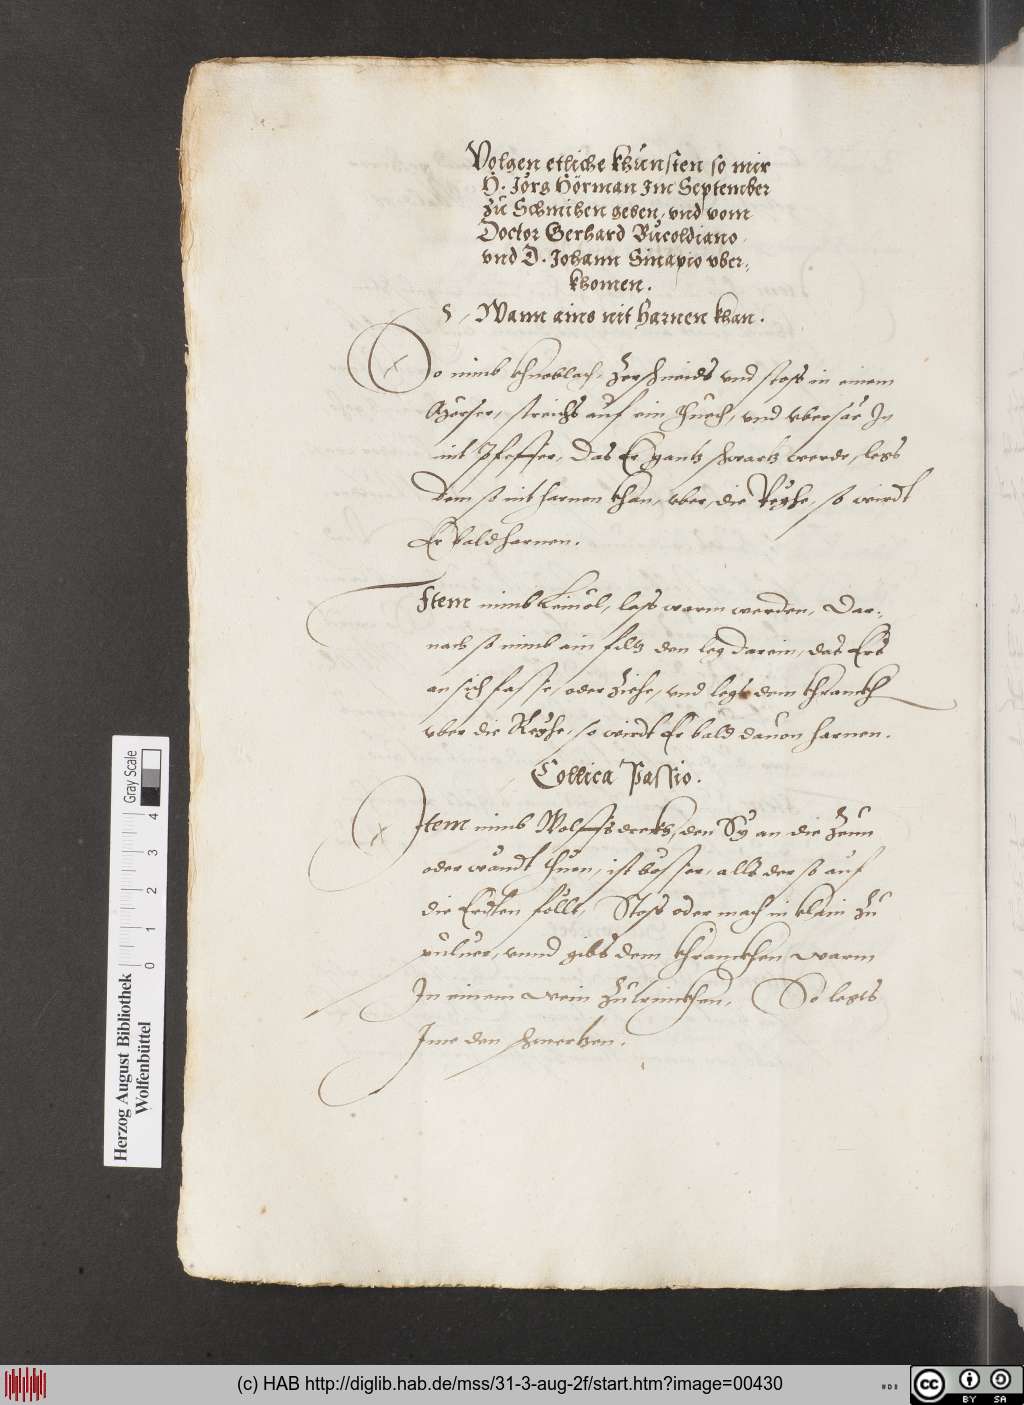 Volgen etliche khunsten so mir
H. Jörg Hörman Im September
zu Schmihen geben, vnd vom
Doctor Gerhard Bucoldiano
vnd D. Johann Sinapio vber-
khomen.
Wann ains nit harnen khan.
So nimb khnoblach, zerschneids vnd stoss in einem
Mörser, streichs auf ein thuech, vnd vbersäe In
mit Pfeffer, das Er gantz schwartz werde, legs
dem so nit harnen khan, vber die Reyhe, so wirdt
Er bald harnen.
Item nimb Leinöl, lass warm werden, Dar-
nach so nimb ain filtz den leg darein, das Ers
an sich fasse, oder ziehe, vnd legs dem khranckh
vber die Reyhe, so wirdt Er bald dauon harnen.
Collica Passio.
Item nimb Wolffsdreckh, den Sy an die Zeün
oder wändt thuen, ist besser, alls der so auf
die Erdten föllt, Stoss oder mach in klain zu
puluer, vnnd gibs dem khranckhen warm
In einem wein zutrinckhen, So legts
Ime den schmertzen.
Herzog August Bibliothek
Wolfenbüttel
Gray Scale
0 1 2 3 4
(c) HAB http://diglib.hab.de/mss/31-3-aug-2f/start.htm?image=00430
cc BY SA